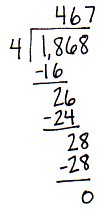 467
4 1,868
-16
26
-24
28
-28
0